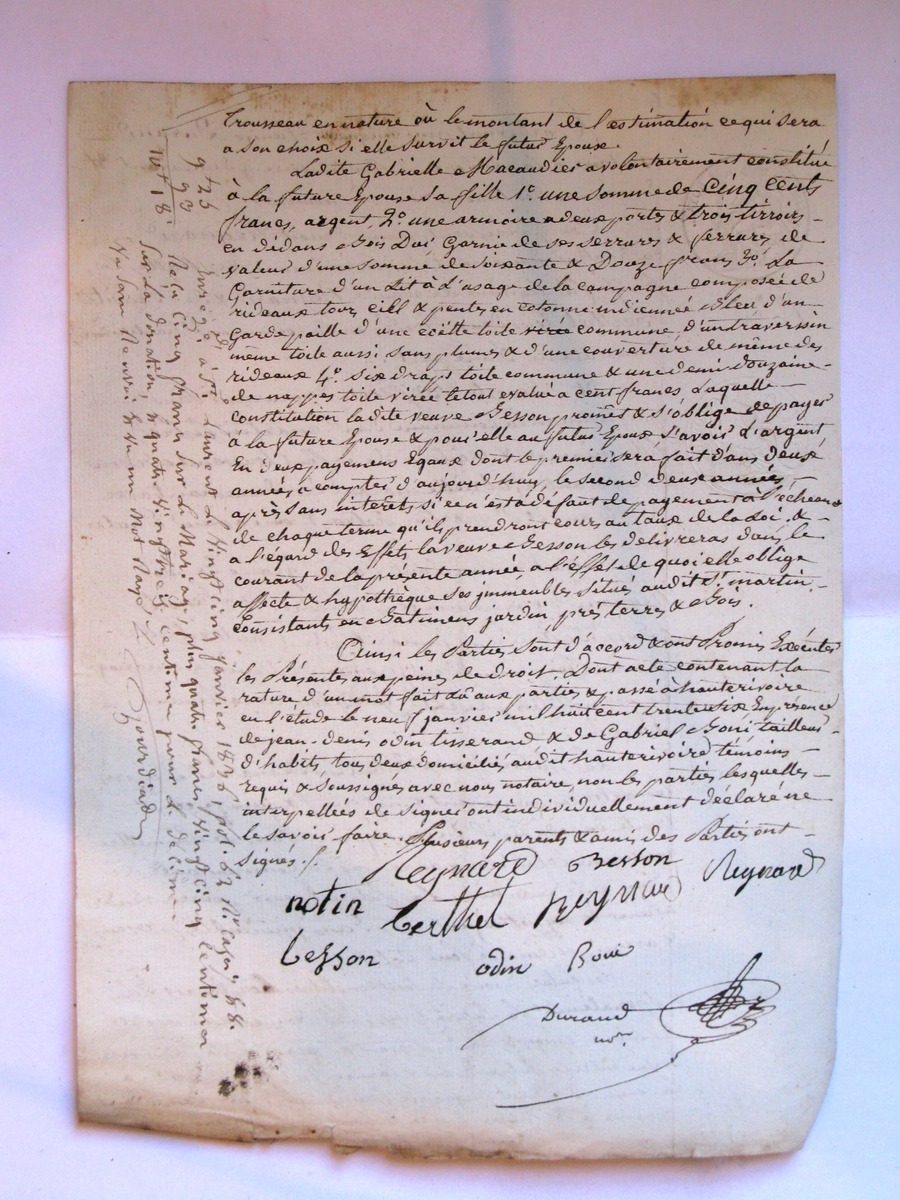 trousseau en nature où le montant de l'estimation ce qui sera
a son choix si elle survit le futur Epoux.
Ladite Gabrielle Macaudier a volontairement constitué
à la future Epouse sa fille 1.º une somme de cinq cents
francs, argent, 2.º une armoire a deux portes & trois tirroirs
en dédans Bois Dur Garnie de ses serrures & ferrures, de
valeur d'une somme de soixante & Douze francs 3.º La
Garniture d'un Lit à L'usage de la campagne composée de
rideaux tour, ciel & pentes en cotonne indienne Bleu, d'un
Garde paille d'une toile virée commune, d'un traversin
meme toile aussi sans plumes & d'une couverture de même des
rideaux 4.º six draps toile commune & une demi douzaine
de nappes toile virée le tout evalué a cent francs Laquelle
constitution ladite veuve Besson promet & s'oblige de payer
à la future Epouse & pour elle au futur Epoux S'avoir L'argent
En deux payemens Egaux dont le premier sera fait dans deux
années a compter d'aujourd'huy, le second deux années
après sans intérêts si ce n'est à défaut de payement à l'échéance
de chaque terme qu'ils prendront cours au taux de la Loi, &
a l'égard des Effets la veuve Besson les délivrera dans le
courant de la présente année, a l'effet de quoi elle oblige
affecte & hypothèque ses immeubles situés audit St. martin
consistants en Batimens jardin, prés terres & Bois.
Ainsi les Parties sont d'accord & ont Promis Exécuter
les Présentes aux peines de droit. Dont acte contenant la
rature d'un mot fait Lû aux parties & passé à hauterivoire
en l'étude le neuf janvier mil huit cent trente six En présence
de jean-denis odin tisserand & de Gabriel Boni tailleur
d'habits tous deux domiciliés audit hauterivoire témoins
requis & soussignés avec nous notaire, non les parties lesquelles
interpellées de signer ont individuellement déclaré ne
le savoir faire. Plusieurs parents & amis des Parties ont
signés. /.
Reynard Besson
notin berthet Reynard Reynard
besson odin
Durand
not.re
9 f 25
93
10 f 18
Enregé. à St. Laurent le vingt cinq janvier 1836, fol. 62
Reçu cinq francs sur le Mariage, plus quatre francs vingt cinq centimes
sur la donation, & quatre vingt treize centimes pour le décime
Vu sans Renvoi & vu un Mot Rayé. Gourdiard